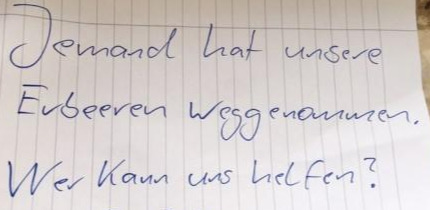 Jemand hat unsere
Erbeeren weggenommen.
Wer kann uns helfen?